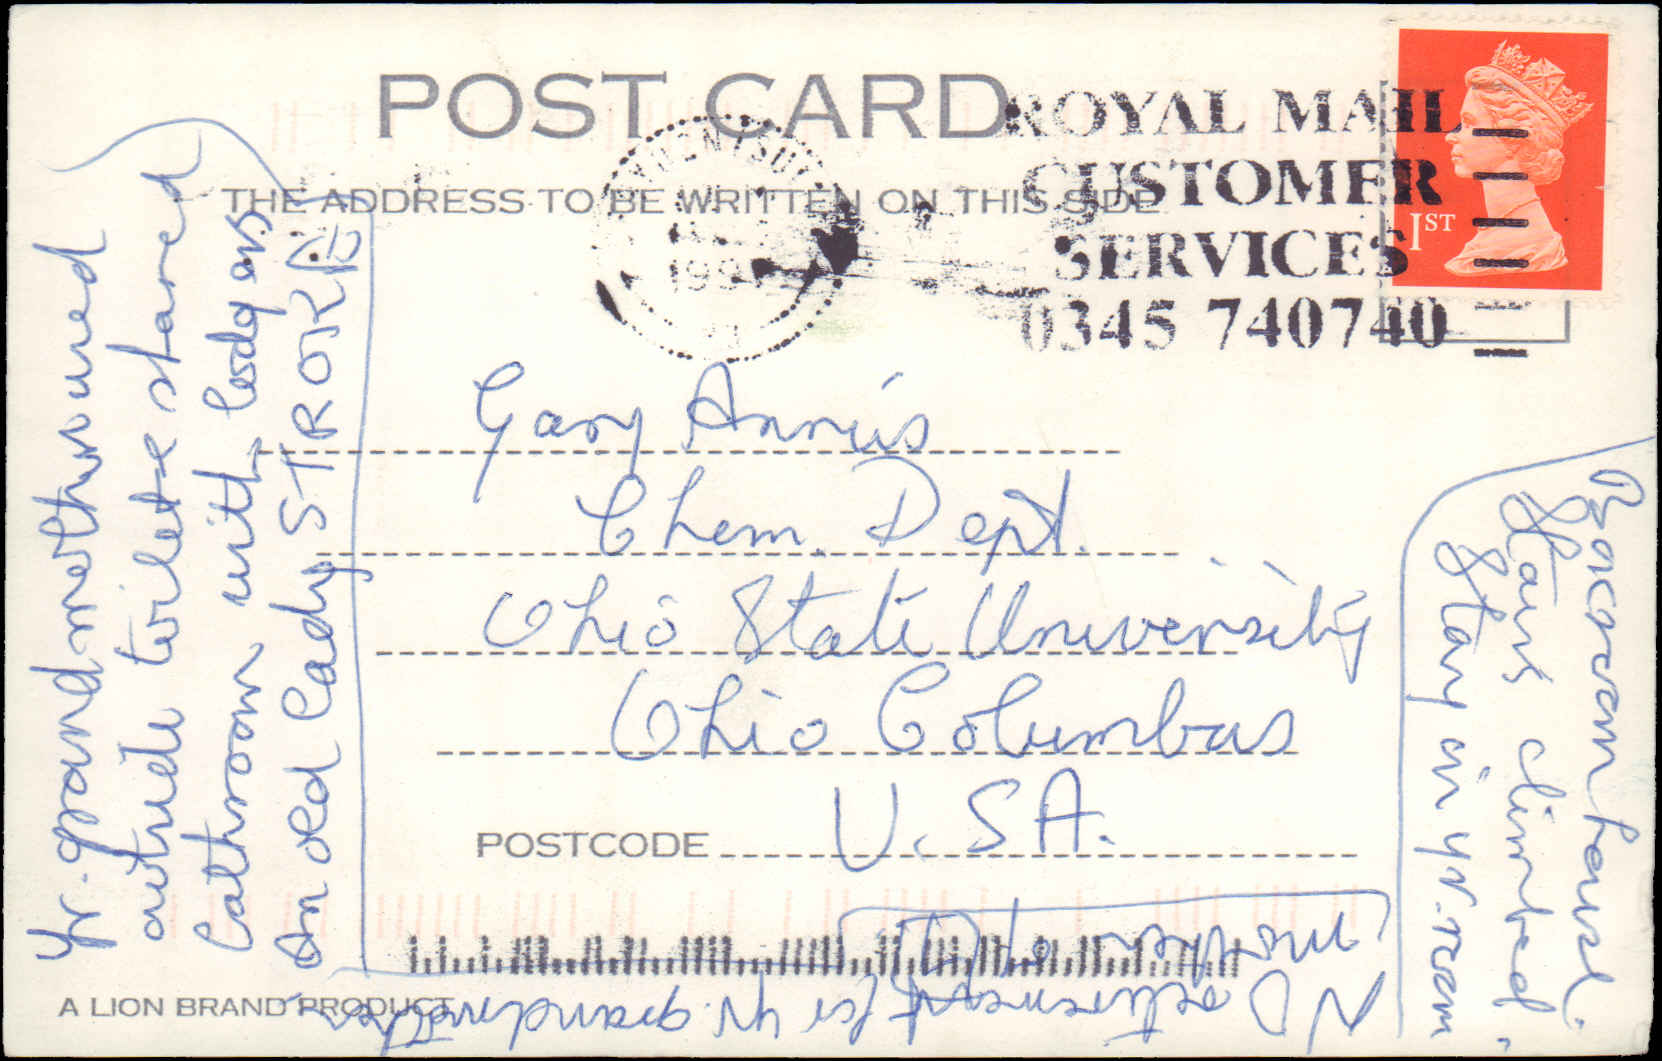 POST CARD
THE ADDRESS TO BE WRITTEN ON THIS SIDE
ROYAL MAIL
CUSTOMER
SERVICES
0345 740740
1ST
199
Gary Annis
Chem. Dept.
Ohio State University
Ohio Columbus
U.S.A.
POSTCODE
A LION BRAND PRODUCT
Yr. grand mother used
shared
bathroom with lodgers
an old lady STROKE
house.
Stairs climbed.
Stay in yr. room
mother
NO retirement for yr. grandmother